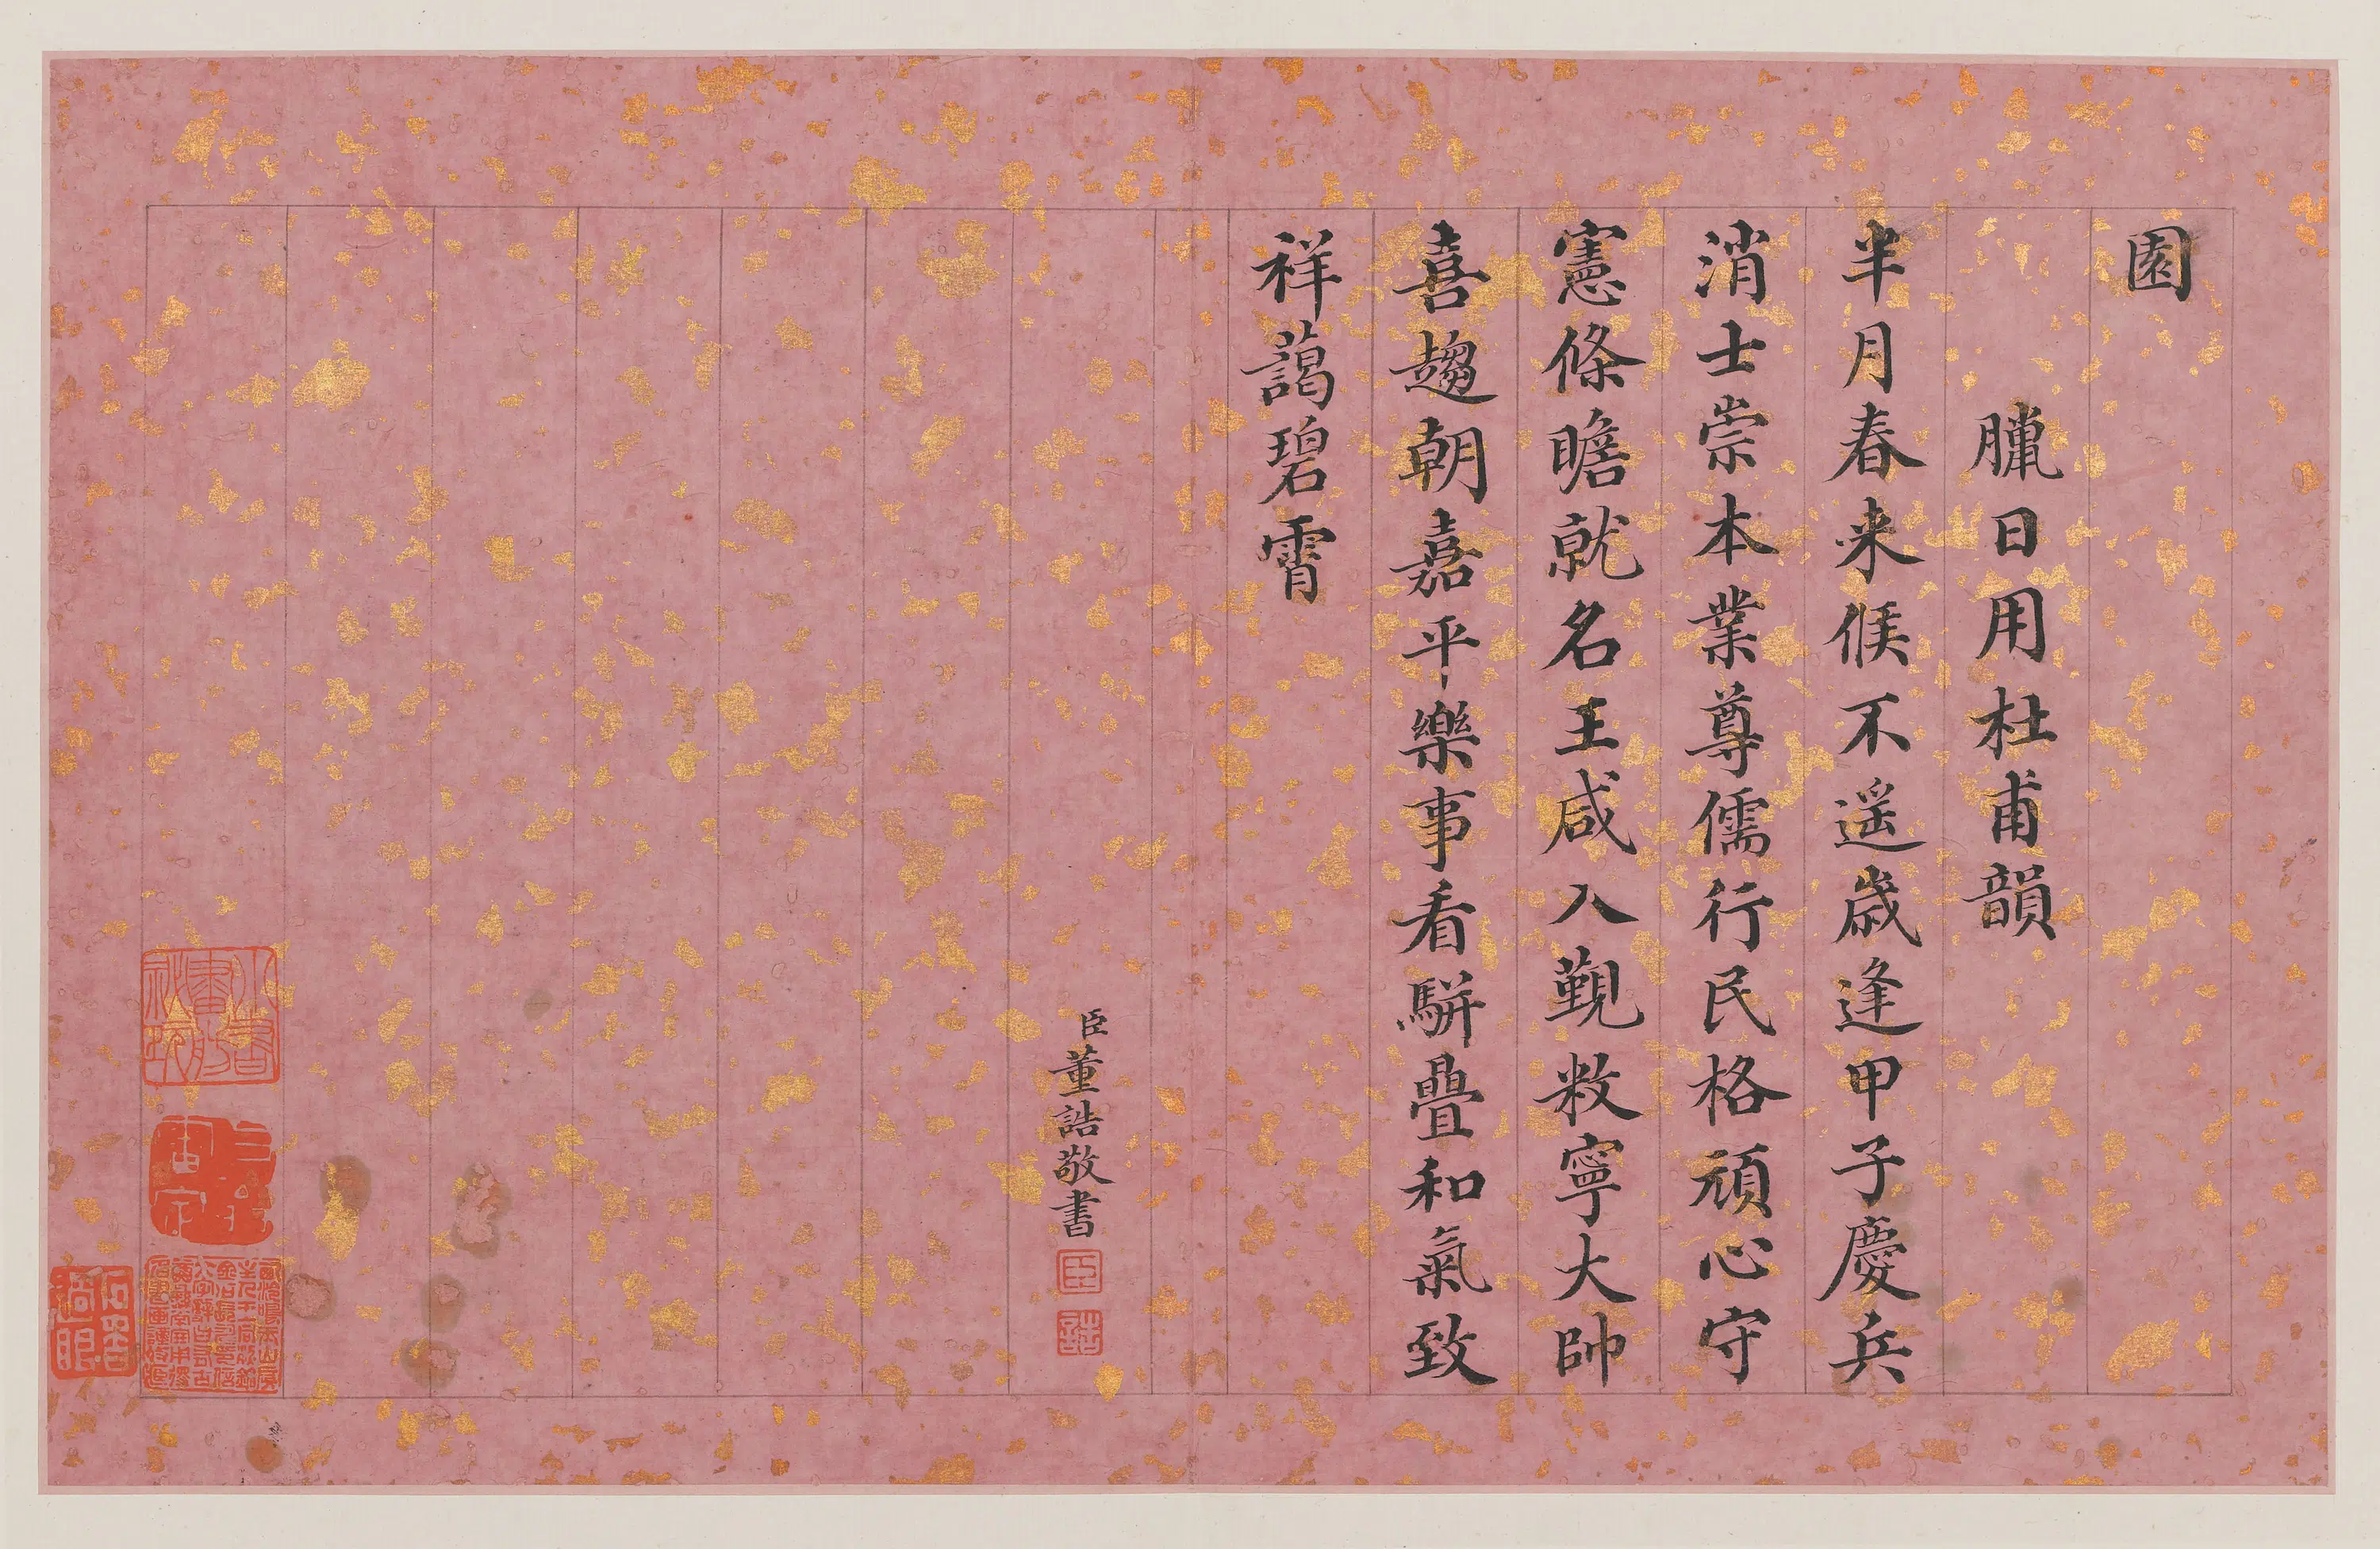 園
臘日用杜甫韻
半月春来候不遥歲逢甲子慶兵
消士崇本業尊儒行民格頑心守
憲條瞻就名王咸入覲敉寧大帥
喜趨朝嘉平樂事看駢疊和氣致
祥藹碧霄
臣董誥敬書
臣
誥